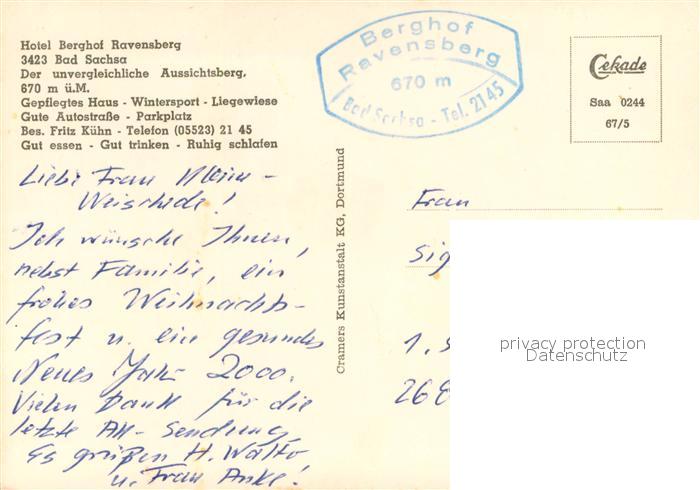 Hotel Berghof Ravensberg
3423 Bad Sachsa
Der unvergleichliche Aussichtsberg,
670 m ü.M.
Gepflegtes Haus - Wintersport - Liegewiese
Gute Autostraße - Parkplatz
Bes. Fritz Kühn - Telefon (05523) 21 45
Gut essen - Gut trinken - Ruhig schlafen
Berghof
Ravensberg
670 m
Bad Sachsa - Tel. 21 45
Cekade
Saa 0244
67/5
Cramers Kunstanstalt KG, Dortmund
Liebe Frau
Ich wünsche Ihnen,
nebst Familie, ein
frohes Weihnachts-
fest u. ein gesundes
Neues Jahr 2000.
Vielen Dank für die
letzte AK-Sendung
Es grüßen H. Walto
u. Frau Anke!
Frau
Sig
1. S
268
privacy protection
Datenschutz